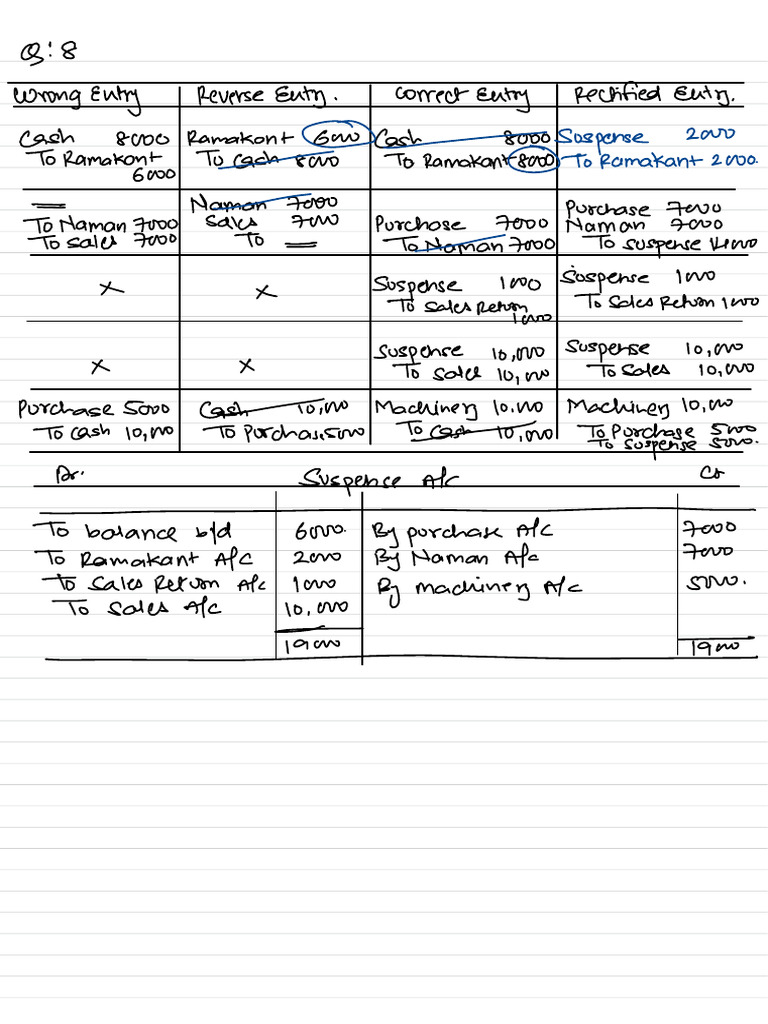 Q: 8
Wrong Entry Reverse Entry. Correct Entry Rectified Entry.
Cash 8000 Ramakant 6000 Cash 8000 Suspense 2000
To Ramakant 6000 To Cash 8000 To Ramakant 8000 To Ramakant 2000.
— Naman 7000 Purchase 7000
To Naman 7000 Sales 7000 Purchase 7000 Naman 7000
To Sales 7000 To — To Naman 7000 To Suspense 14000
x x Suspense 1000 Suspense 1000
To Sales Return 1000 To Sales Return 1000
x x Suspense 10,000 Suspense 10,000
To Sales 10,000 To Sales 10,000
Purchase 5000 Cash 10,000 Machinery 10,000 Machinery 10,000
To Cash 10,000 To Purchase 5000 To Cash 10,000 To Purchase 5000
To Suspense 5000.
Dr. Suspense A/c Cr
To balance b/d 6000. By purchase A/c 7000
To Ramakant A/c 2000 By Naman A/c 7000
To Sales Return A/c 1000 By machinery A/c 5000.
To Sales A/c 10,000
19000 19000